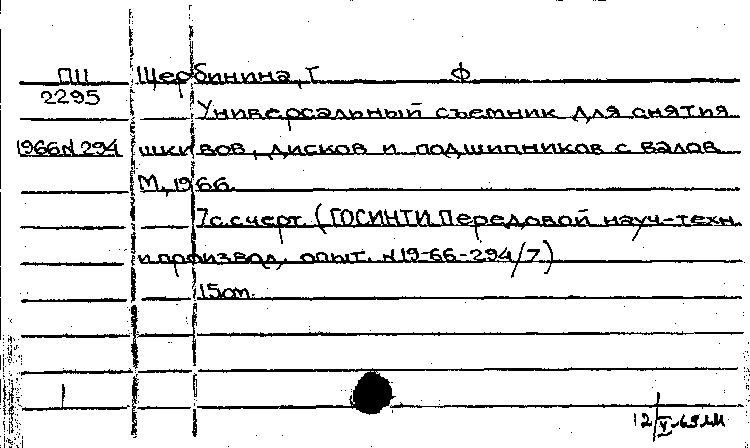 ПШ Щербинина, Г Ф
2295
Универсальный съемник для снятия
1966 N 294 шкивов, дисков и подшипников с валов
М, 1966.
7с. с черт. (ГОСИНТИ. Передовой науч-техн.
и производ. опыт. N 19-66-294/7)
15от.